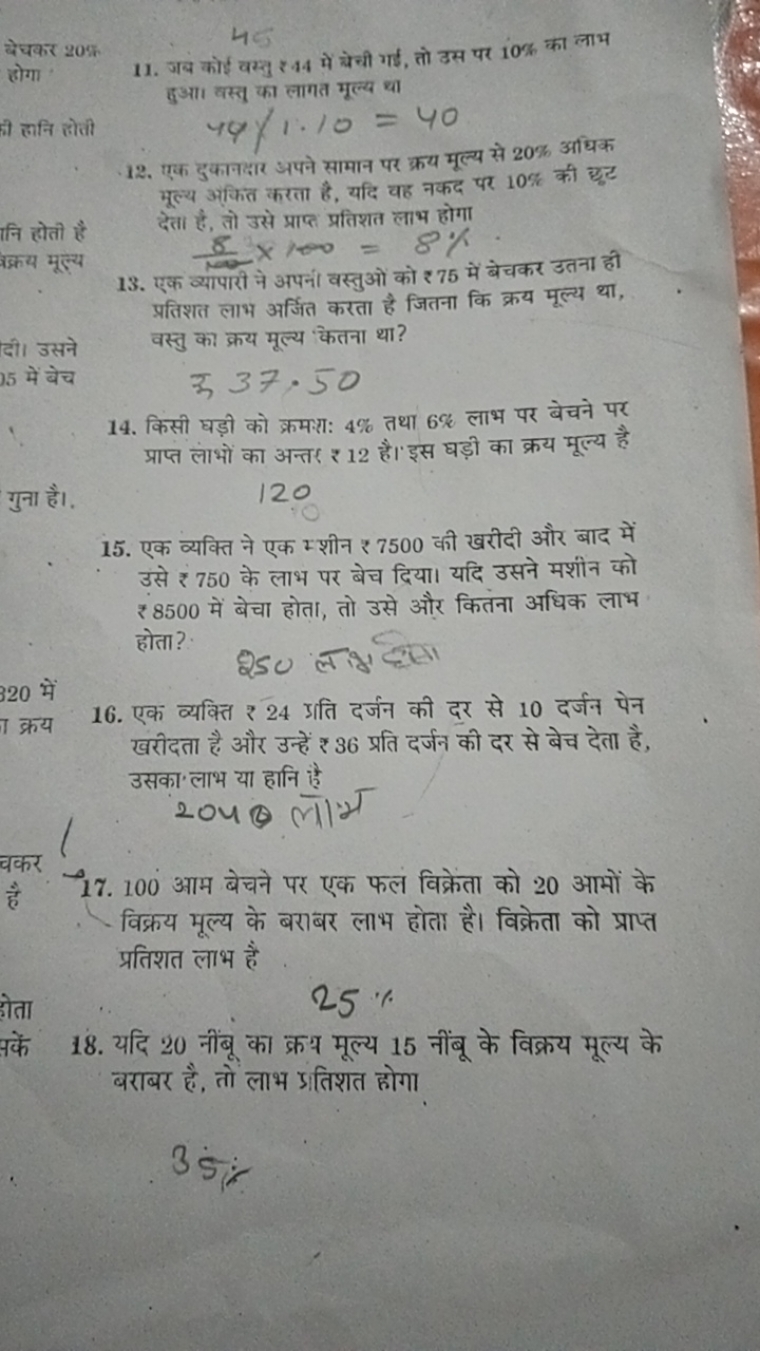 बेचकर 20%
होगा
की हानि होती
हानि होती है
विक्रय मूल्य
उसने
05 में बेच
गुना है।
320 में
क्रय
है
होता
45
11. जब कोई वस्तु ₹44 में बेची गई, तो उस पर 10% का लाभ
हुआ। वस्तु का लागत मूल्य था
44/1.10 = 40
12. एक दुकानदार अपने सामान पर क्रय मूल्य से 20% अधिक
मूल्य अंकित करता है, यदि वह नकद पर 10% की छूट
देता है, तो उसे प्राप्त प्रतिशत लाभ होगा
8/100 × 100 = 8%
13. एक व्यापारी ने अपनी वस्तुओं को ₹75 में बेचकर उतना ही
प्रतिशत लाभ अर्जित करता है जितना कि क्रय मूल्य था,
वस्तु का क्रय मूल्य कितना था?
₹ 37.50
14. किसी घड़ी को क्रमशः 4% तथा 6% लाभ पर बेचने पर
प्राप्त लाभों का अन्तर ₹12 है। इस घड़ी का क्रय मूल्य है
120
15. एक व्यक्ति ने एक मशीन ₹7500 की खरीदी और बाद में
उसे ₹750 के लाभ पर बेच दिया। यदि उसने मशीन को
₹8500 में बेचा होता, तो उसे और कितना अधिक लाभ
होता?
250 लाभ होता
16. एक व्यक्ति ₹24 प्रति दर्जन की दर से 10 दर्जन पेन
खरीदता है और उन्हें ₹36 प्रति दर्जन की दर से बेच देता है,
उसका लाभ या हानि है
लाभ
17. 100 आम बेचने पर एक फल विक्रेता को 20 आमों के
विक्रय मूल्य के बराबर लाभ होता है। विक्रेता को प्राप्त
प्रतिशत लाभ है
25%
18. यदि 20 नींबू का क्रय मूल्य 15 नींबू के विक्रय मूल्य के
बराबर है, तो लाभ प्रतिशत होगा
35%